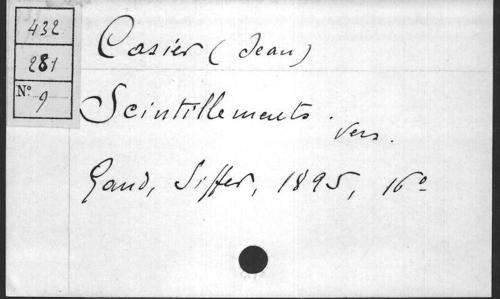 432
281
N° 9
Casier (Jean)
Scintillements.
Vers.
Gand, Siffer, 1895, 16°